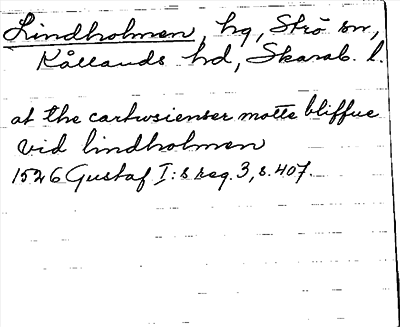 Lindholmen, hg, Strö sn,
Kållands hd, Skarab. l.
at the cartwsienser motte bliffue
vid lindholmen
1526 Gustaf I:s reg. 3, s. 407.